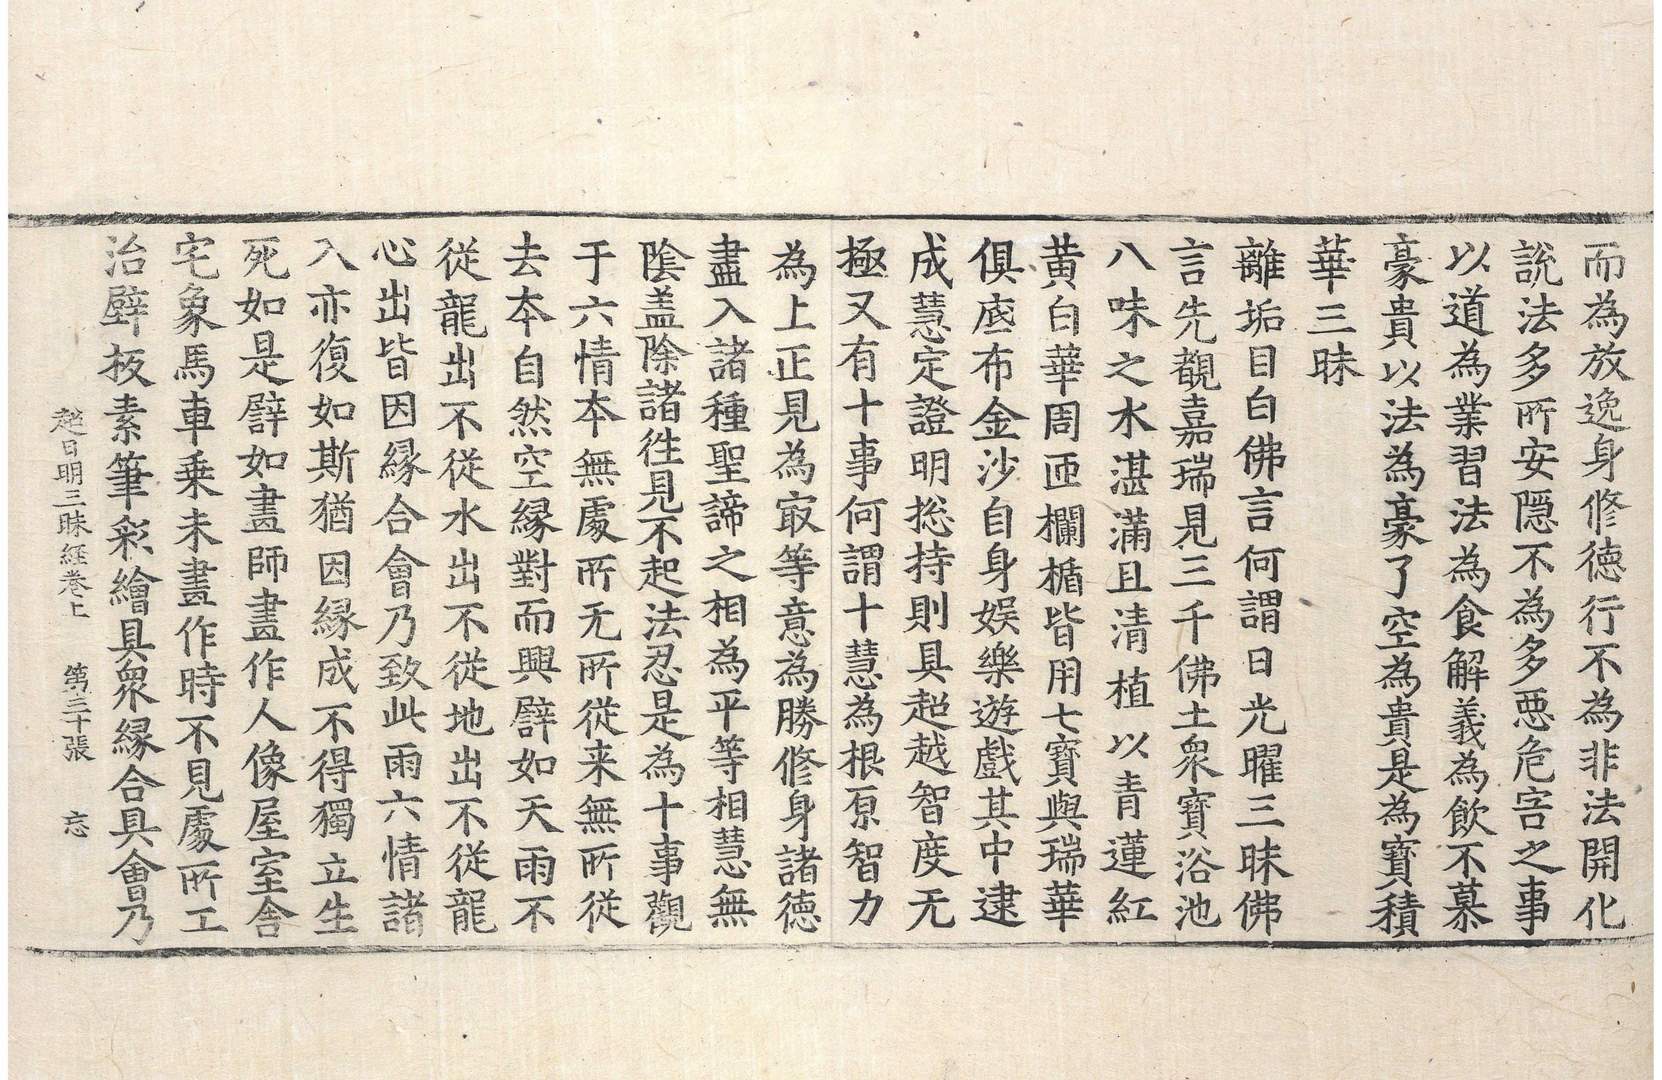 而為放逸身修德行不為非法開化
說法多所安隱不為多惡危害之事
以道為業習法為食解義為飲不慕
豪貴以法為豪了空為貴是為寶積
華三昧
離垢目白佛言何謂日光曜三昧佛
言先覩嘉瑞見三千佛土衆寶浴池
八味之水湛滿且清植以青蓮紅
黃白華周匝欄楯皆用七寶與瑞華
俱底布金沙自身娛樂遊戲其中逮
成慧定證明捴持則具超越智度无
極又有十事何謂十慧為根原智力
為上正見為㝡等意為勝修身諸德
盡入諸種聖諦之相為平等相慧無
陰盖除諸徃見不起法忍是為十事觀
于六情本無處所无所從来無所從
去本自然空緣對而興譬如天雨不
從龍出不從水出不從地出不從龍
心出皆因緣合會乃致此雨六情諸
入亦復如斯猶因緣成不得獨立生
死如是譬如畫師畫作人像屋室舍
宅象馬車乗未畫作時不見處所工
治壁板素筆彩繪具衆緣合具會乃
超日明三昧経卷上　第三十張　忘